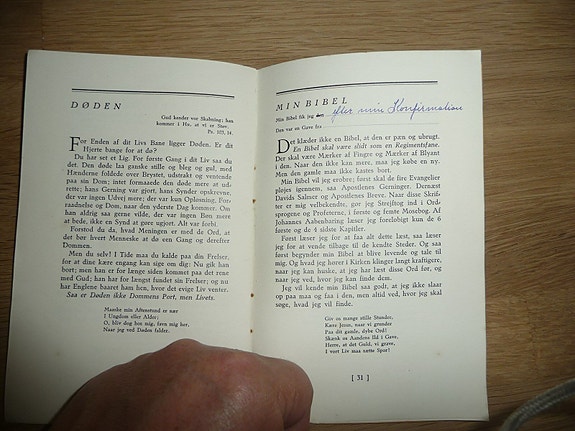 DØDEN
Gud kender vor Skabning; han
kommer i Hu, at vi er Støv.
Ps. 103, 14.
For Enden af dit Livs Bane ligger Døden. Er dit
Hjerte bange for at dø?
Du har set et Lig. For første Gang i dit Liv saa du
det. Den døde laa ganske stille og bleg og gul, med
Hænderne foldede over Brystet, udstrakt og ventende
paa sin Dom; intet formaaede den døde mere at ud-
rette; hans Gerning var gjort, hans Synder opskrevne.
der var ingen Udvej mere; der var kun Opløsning, For-
raadnelse og Dom, naar den yderste Dag kommer. Om
han aldrig saa gerne vilde, der var ingen Bøn mere
at bede, ikke en Synd at gøre ugjort. Alt var forbi.
Forstod du da, hvad Meningen er med de Ord, at
det bør hvert Menneske at dø een Gang og derefter
Dommen.
Men du selv! I Tide maa du kalde paa din Frelser,
for at dine kære engang kan sige om dig: Nu gik han
bort; men han er for længe siden kommet paa det rene
med Gud; han har for længst fundet sin Frelser; og nu
har Englene baaret ham hen, hvor det evige Liv venter.
Saa er Døden ikke Dommens Port, men Livets.
Maaske min Aftenstund er nær
I Ungdom eller Alder;
O, bliv dog hos mig, favn mig her,
Naar jeg ved Døden falder.
MIN BIBEL
Min Bibel fik jeg den efter min Konfirmation
Den var en Gave fra
Det klæder ikke en Bibel, at den er pæn og ubrugt.
En Bibel skal være slidt som en Regimentsfane.
Der skal være Mærker af Finger og Mærker af Blyant
i den. Naar den ikke kan mere, maa jeg købe en ny.
Men den gamle maa ikke kastes bort.
Min Bibel vil jeg erobre; først skal de fire Evangelier
pløjes igennem, saa Apostlenes Gerninger. Dernæst
Davids Salmer og Apostlenes Breve. Naar disse Skrif-
ter er mig velbekendte, gør jeg Strejftog ind i Ord-
sprogene og Profeterne, i første og femte Mosebog. Af
Johannes Aabenbaring læser jeg foreløbigt kun de 6
første og de 4 sidste Kapitler.
Først læser jeg for at faa alt dette læst, saa læser
jeg for at vende tilbage til de kendte Steder. Og saa
først begynder min Bibel at blive levende og tale til
mig. Og hvad jeg hører i Kirken klinger langt kraftigere,
naar jeg kan huske, at jeg har læst disse Ord før, og
naar jeg ved, hvor jeg kan finde dem.
Jeg vil kende min Bibel saa godt, at jeg ikke slaar
op paa maa og faa i den, men altid ved, hvor jeg skal
søge, hvad jeg vil finde.
Giv os mange stille Stunder,
Kære Jesus, naar vi grunder
Paa dit gamle, dybe Ord!
Skænk os Aandens Ild i Gave,
Herre, at det Guld, vi grave,
I vort Liv maa sætte Spor!
[ 31 ]